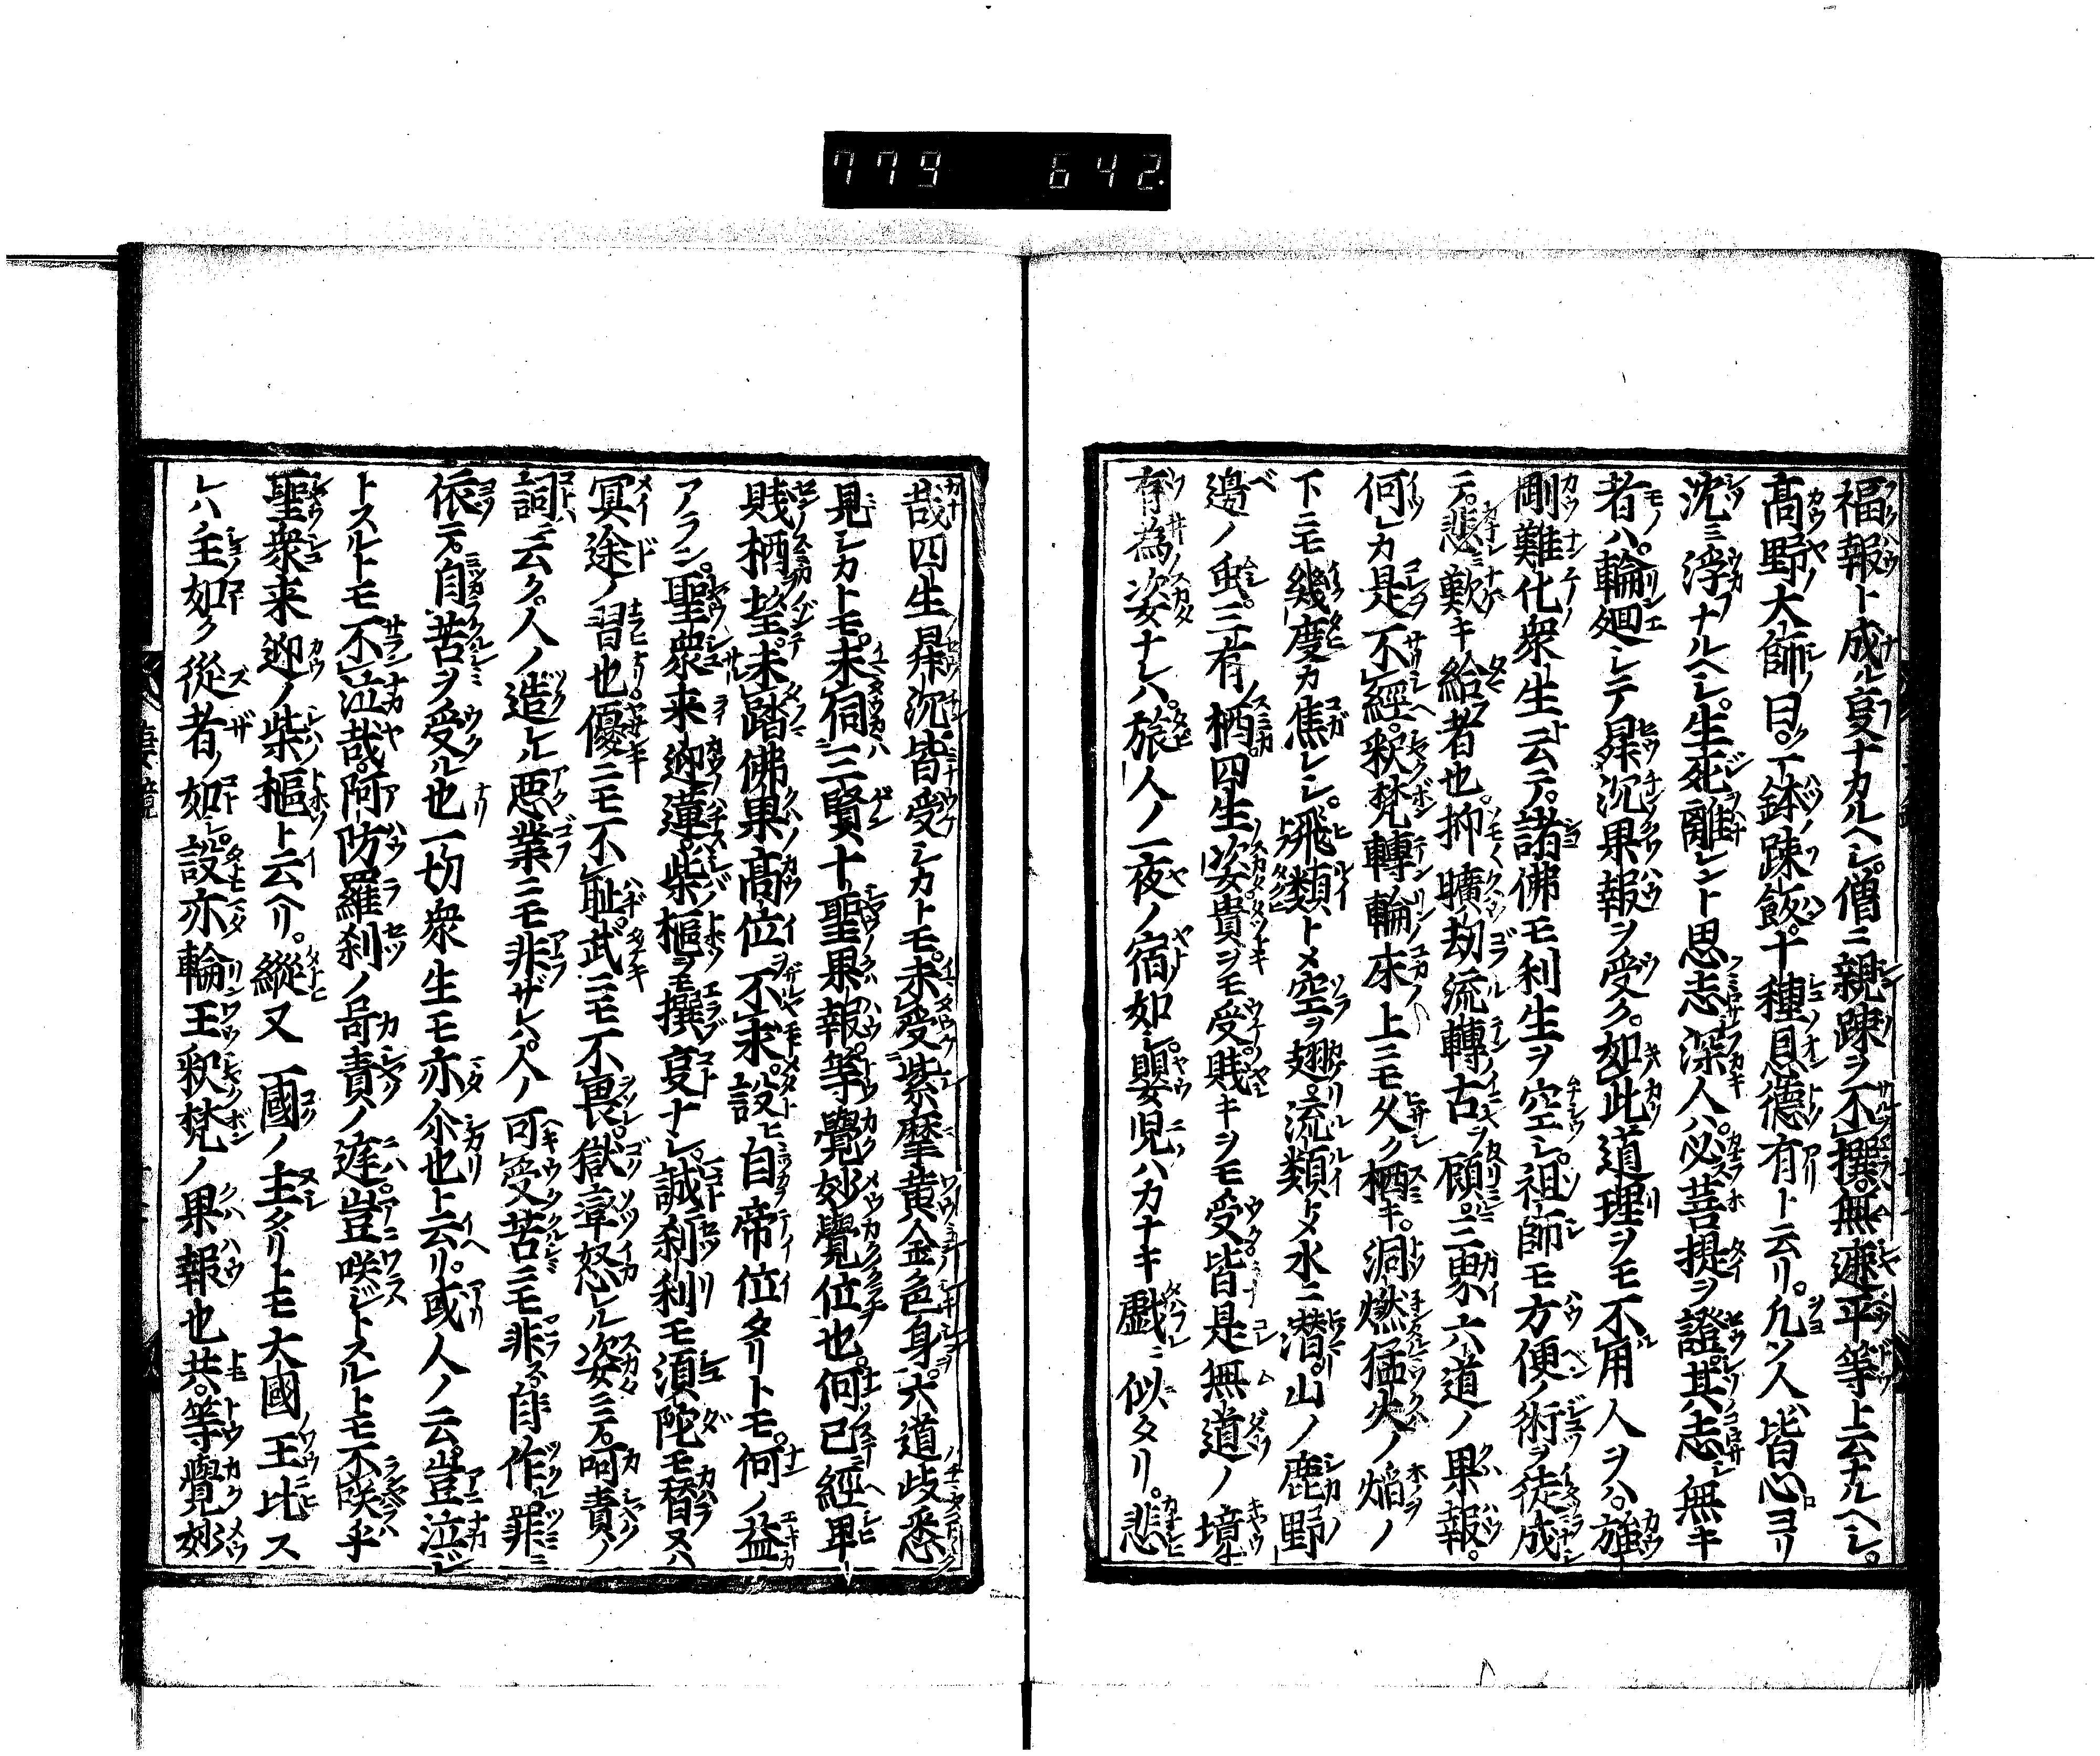 779 642
福報ト成ル叓ナカルヘシ。僧ニ親踈ヲ不撰。無遮平等ト云ナルヘシ。
髙野ノ大師ノ曰ク。一鉢ノ踈飯。十種ノ恩德有ト云リ。凢ソ人ハ皆心ヨリ
沈ミ浮フナルヘシ。生死離レント思志深人ハ。必菩提ヲ證。其志シ無キ
者ハ。輪廻シテ曻沉果報ヲ受ク。如此道理ヲモ不用人ヲハ。強
剛難化衆生ト云テ。諸佛モ利生ヲ空シ。祖師モ方便ノ術ヲ徒成
テ。悲ミ歎キ給者也。抑曠刧流轉ノ古ヲ顧。三界六道ノ果報。
何レカ是不經。釈梵轉輪床ノ上ニモ久ク栖キ。洞燃猛火ノ焔ノ
下ニモ幾度カ焦レシ。飛類トメ空ヲ翅。流類トメ水ニ潜。山ノ鹿野
邊ノ虫。三有ノ栖。四生ノ姿。貴ヲモ受賎キヲモ受。皆是無道ノ境
有為ノ姿ナレハ。旅人ノ一夜ノ宿如シ。嬰児ハカナキ戯ニ似タリ。悲
哉四生曻沉。皆受シカトモ。未受紫摩黄金色身。六道歧悉
見シカトモ。未伺三賢十聖果報。等覺妙覺位也。何已經卑
賎栖埜。未踏佛果髙位不求。設ヒ自帝位タリトモ。何ノ益
アラン。聖衆来迎蓮。柴樞ヲモ撰叓ナシ。誠ニ刹利モ須陀モ替ヌハ
冥途ノ習也。優ニモ不耻。武ニモ不畏。獄率怒レル姿ニテ。呵責ノ
詞ニ云ク。人ノ造レル悪業ニモ非ザレハ。人ノ可受苦ニモ非ス。自作罪ニ
依テ。自苦ヲ受ル也。一切衆生モ亦尒也ト云リ。或人ノ云。豈泣ジ
トスルトモ不泣哉。阿防羅刹ノ呵責ノ遅。豈咲ジトスルトモ不咲乎
聖衆来迎ノ柴ノ樞ト云ヘリ。縱又一國ノ主タリトモ大國ノ王比ス
レハ主如ク從者ノ如シ。設亦輪王釈梵ノ果報也共。等覺妙